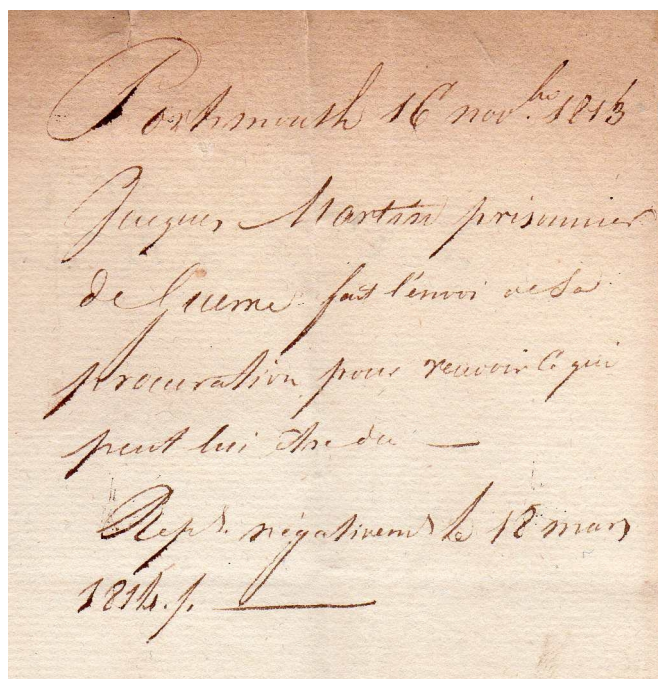 Portsmouth 16 nov.bre 1813
Jacques Martin prisonnier
de Guerre fait l'envoi de sa
procuration pour recevoir ce qui
peut lui être du —
Rep.d négativemt le 18 mars
1814. f. —